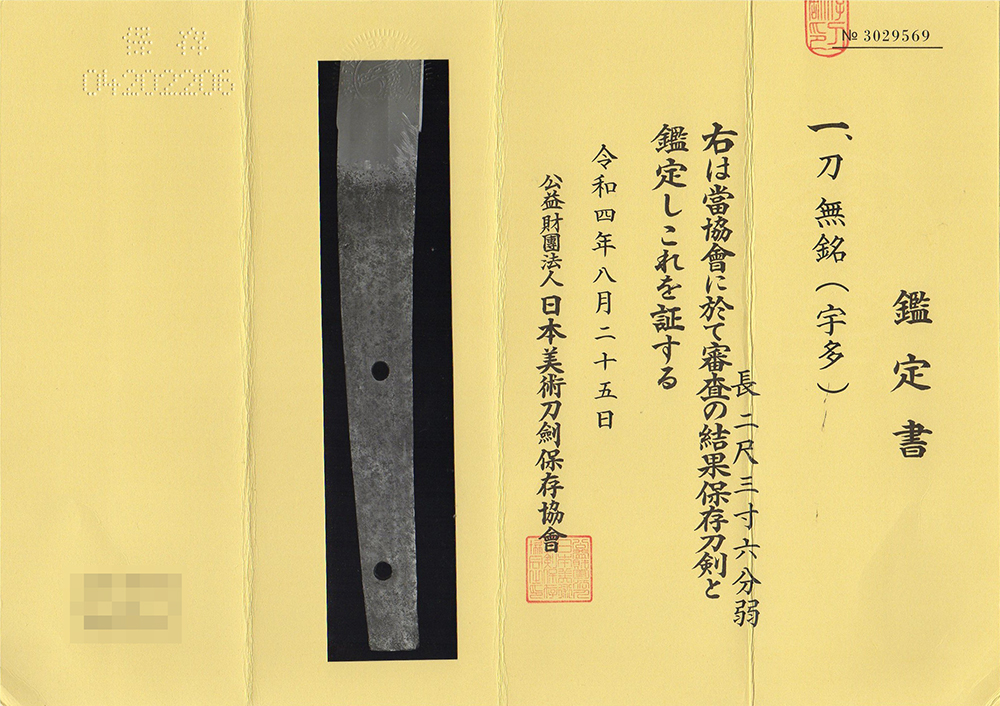 № 3029569
鑑定書
一、刀 無銘（宇多）
長 二尺三寸六分弱
右は當協會に於て審査の結果保存刀剣と
鑑定しこれを証する
令和四年八月二十五日
公益財團法人 日本美術刀劍保存協會
保存
04202206